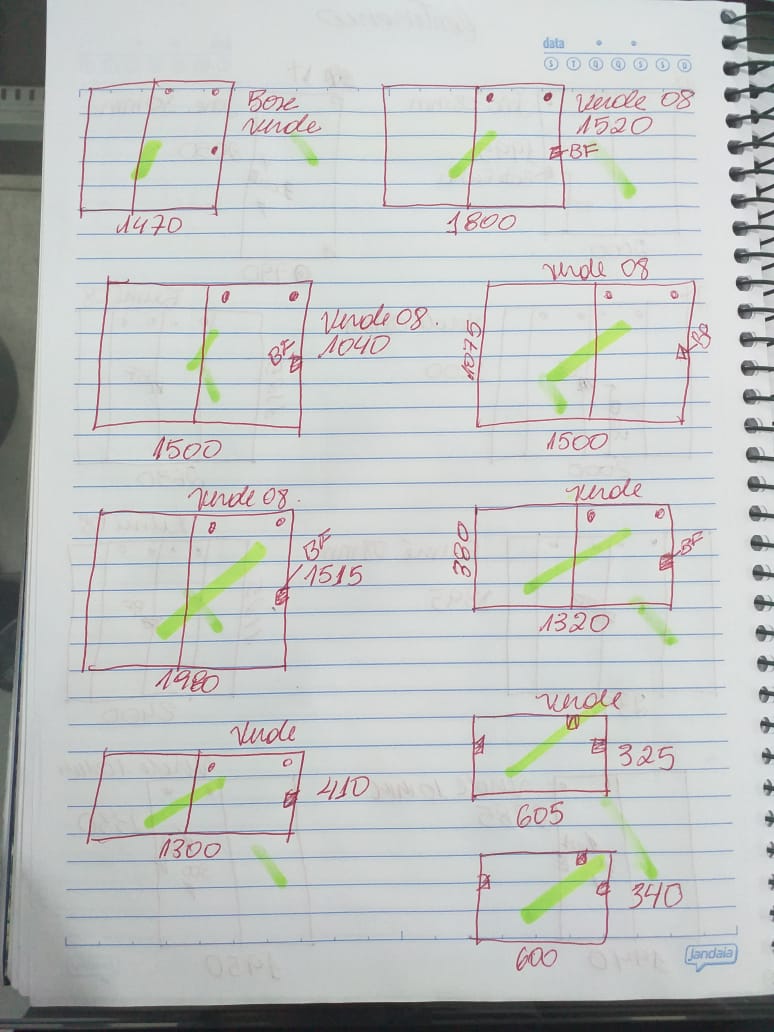 data
S T Q Q S S D
Box
Verde
1470
Verde 08
1520
BF
1800
Verde 08.
1040
BF
1500
Verde 08
1075
1500
Verde 08.
BF
1515
1980
Verde
380
BF
1320
Verde
410
1300
Verde.
325
605
340
600
Jandaia